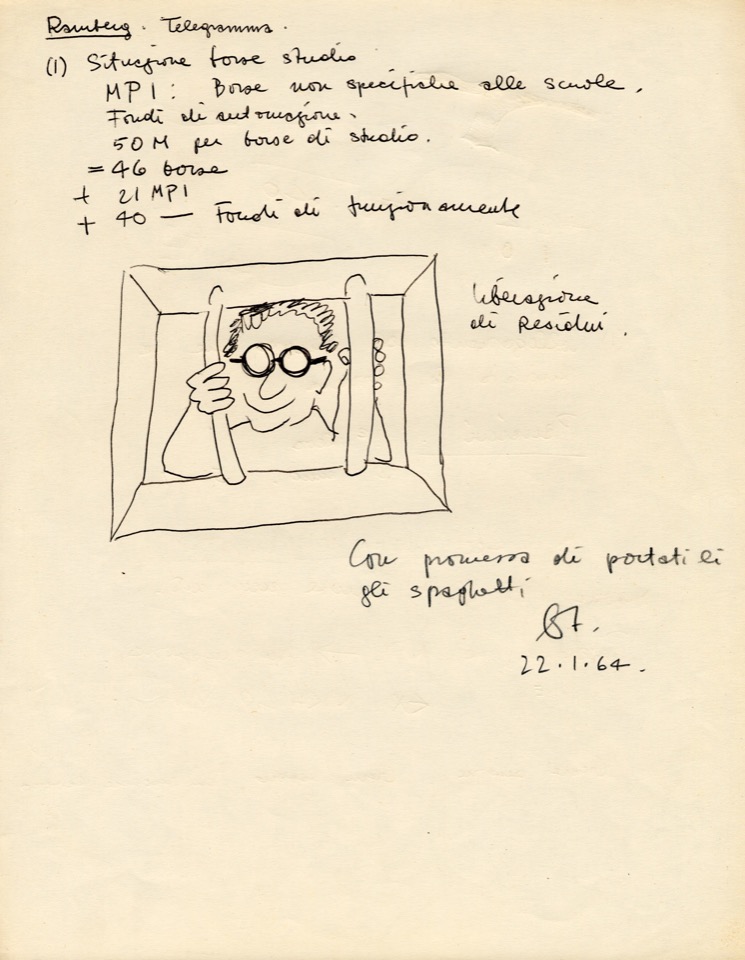 Ramberg. Telegramma.
(1) Situazione borse studio
MPI: Borse non specifiche alle scuole.
Fondi di automazione.
50 M per borse di studio.
= 46 borse
+ 21 MPI
+ 40 — Fondi di funzionamento
liberazione
di Residui.
Con promessa di portati li
gli spaghetti
22.1.64.